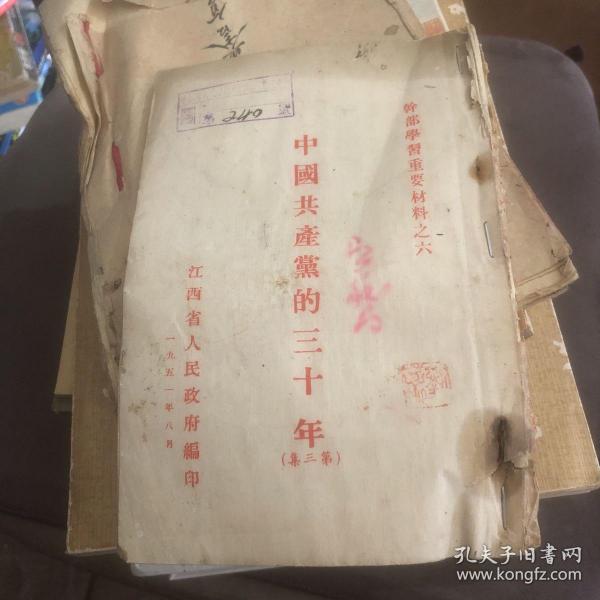 幹部學習重要材料之六
中國共產黨的三十年
(第三集)
江西省人民政府編印
一九五一年八月
第 240 號
孔夫子旧书网
www.kongfz.com